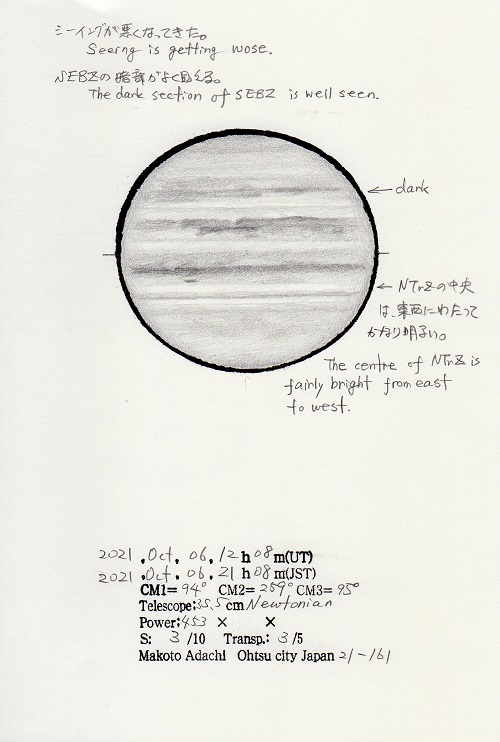 シーイングが悪くなってきた。
Seeing is getting wose.
SEBZの暗部がよく見える。
The dark section of SEBZ is well seen.
← dark
← NTrZの中央
は、東西にわたって
かなり明るい。
The centre of NTrZ is
fairly bright from east
to west.
2021 , Oct, 06, 12 h 08 m(UT)
2021 , Oct, 06, 21 h 08 m(JST)
CM1= 94° CM2= 259° CM3= 95°
Telescope: 35.5 cm Newtonian
Power: 453 × ×
S: 3 /10 Transp.: 3 /5
Makoto Adachi Ohtsu city Japan 21-161